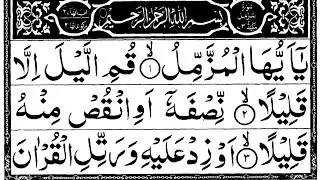 بِسْمِ اللّٰهِ الرَّحْمٰنِ الرَّحِيْمِ
يٰۤاَيُّهَا الْمُزَّمِّلُ ۙ﴿۱﴾ قُمِ الَّيْلَ اِلَّا
قَلِيْلًا ۙ﴿۲﴾ نِّصْفَهٗۤ اَوِ انْقُصْ مِنْهُ
قَلِيْلًا ۙ﴿۳﴾ اَوْ زِدْ عَلَيْهِ وَرَتِّلِ الْقُرْاٰنَ